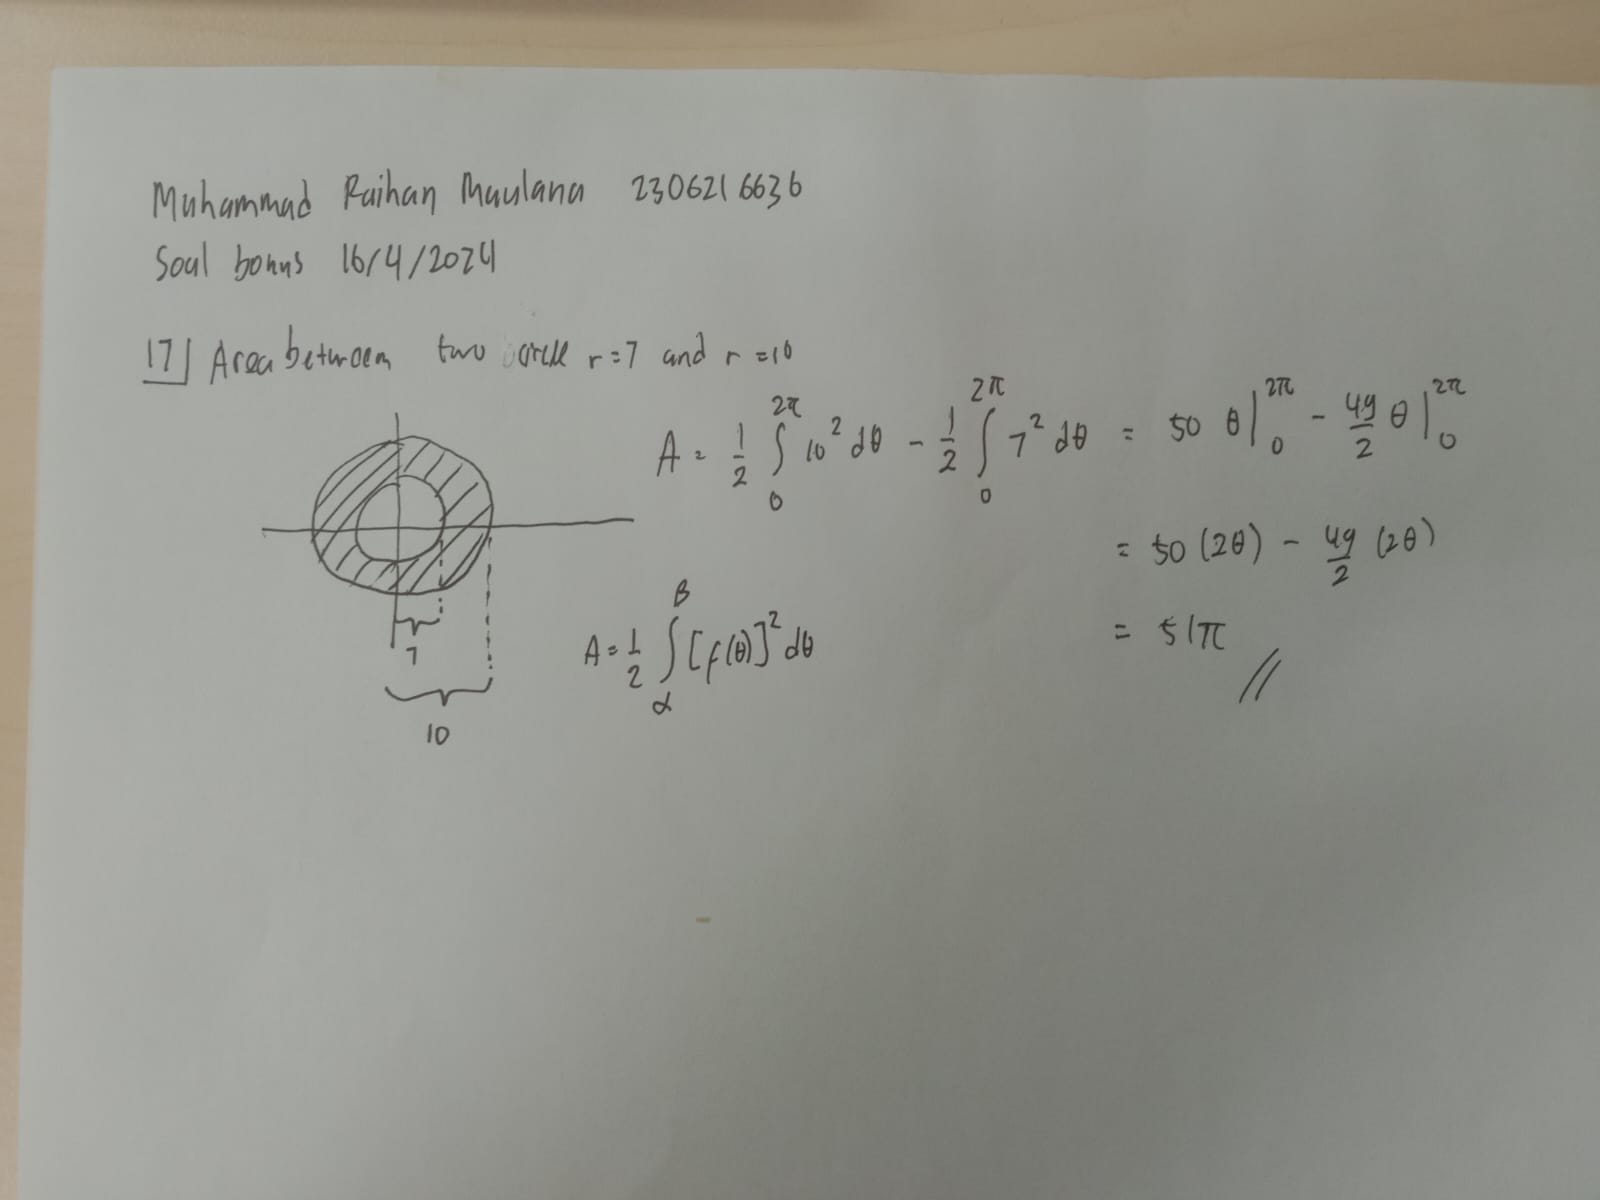 Muhammad Raihan Maulana 2306216636
Soal bonus 16/4/2024
17] Area between two circle r=7 and r=10
A = 1/2 ∫_0^{2π} 10² dθ - 1/2 ∫_0^{2π} 7² dθ = 50 θ|_0^{2π} - 49/2 θ|_0^{2π}
= 50 (2θ) - 49/2 (2θ)
= 51π //
A = 1/2 ∫_α^β [f(θ)]² dθ
7
10